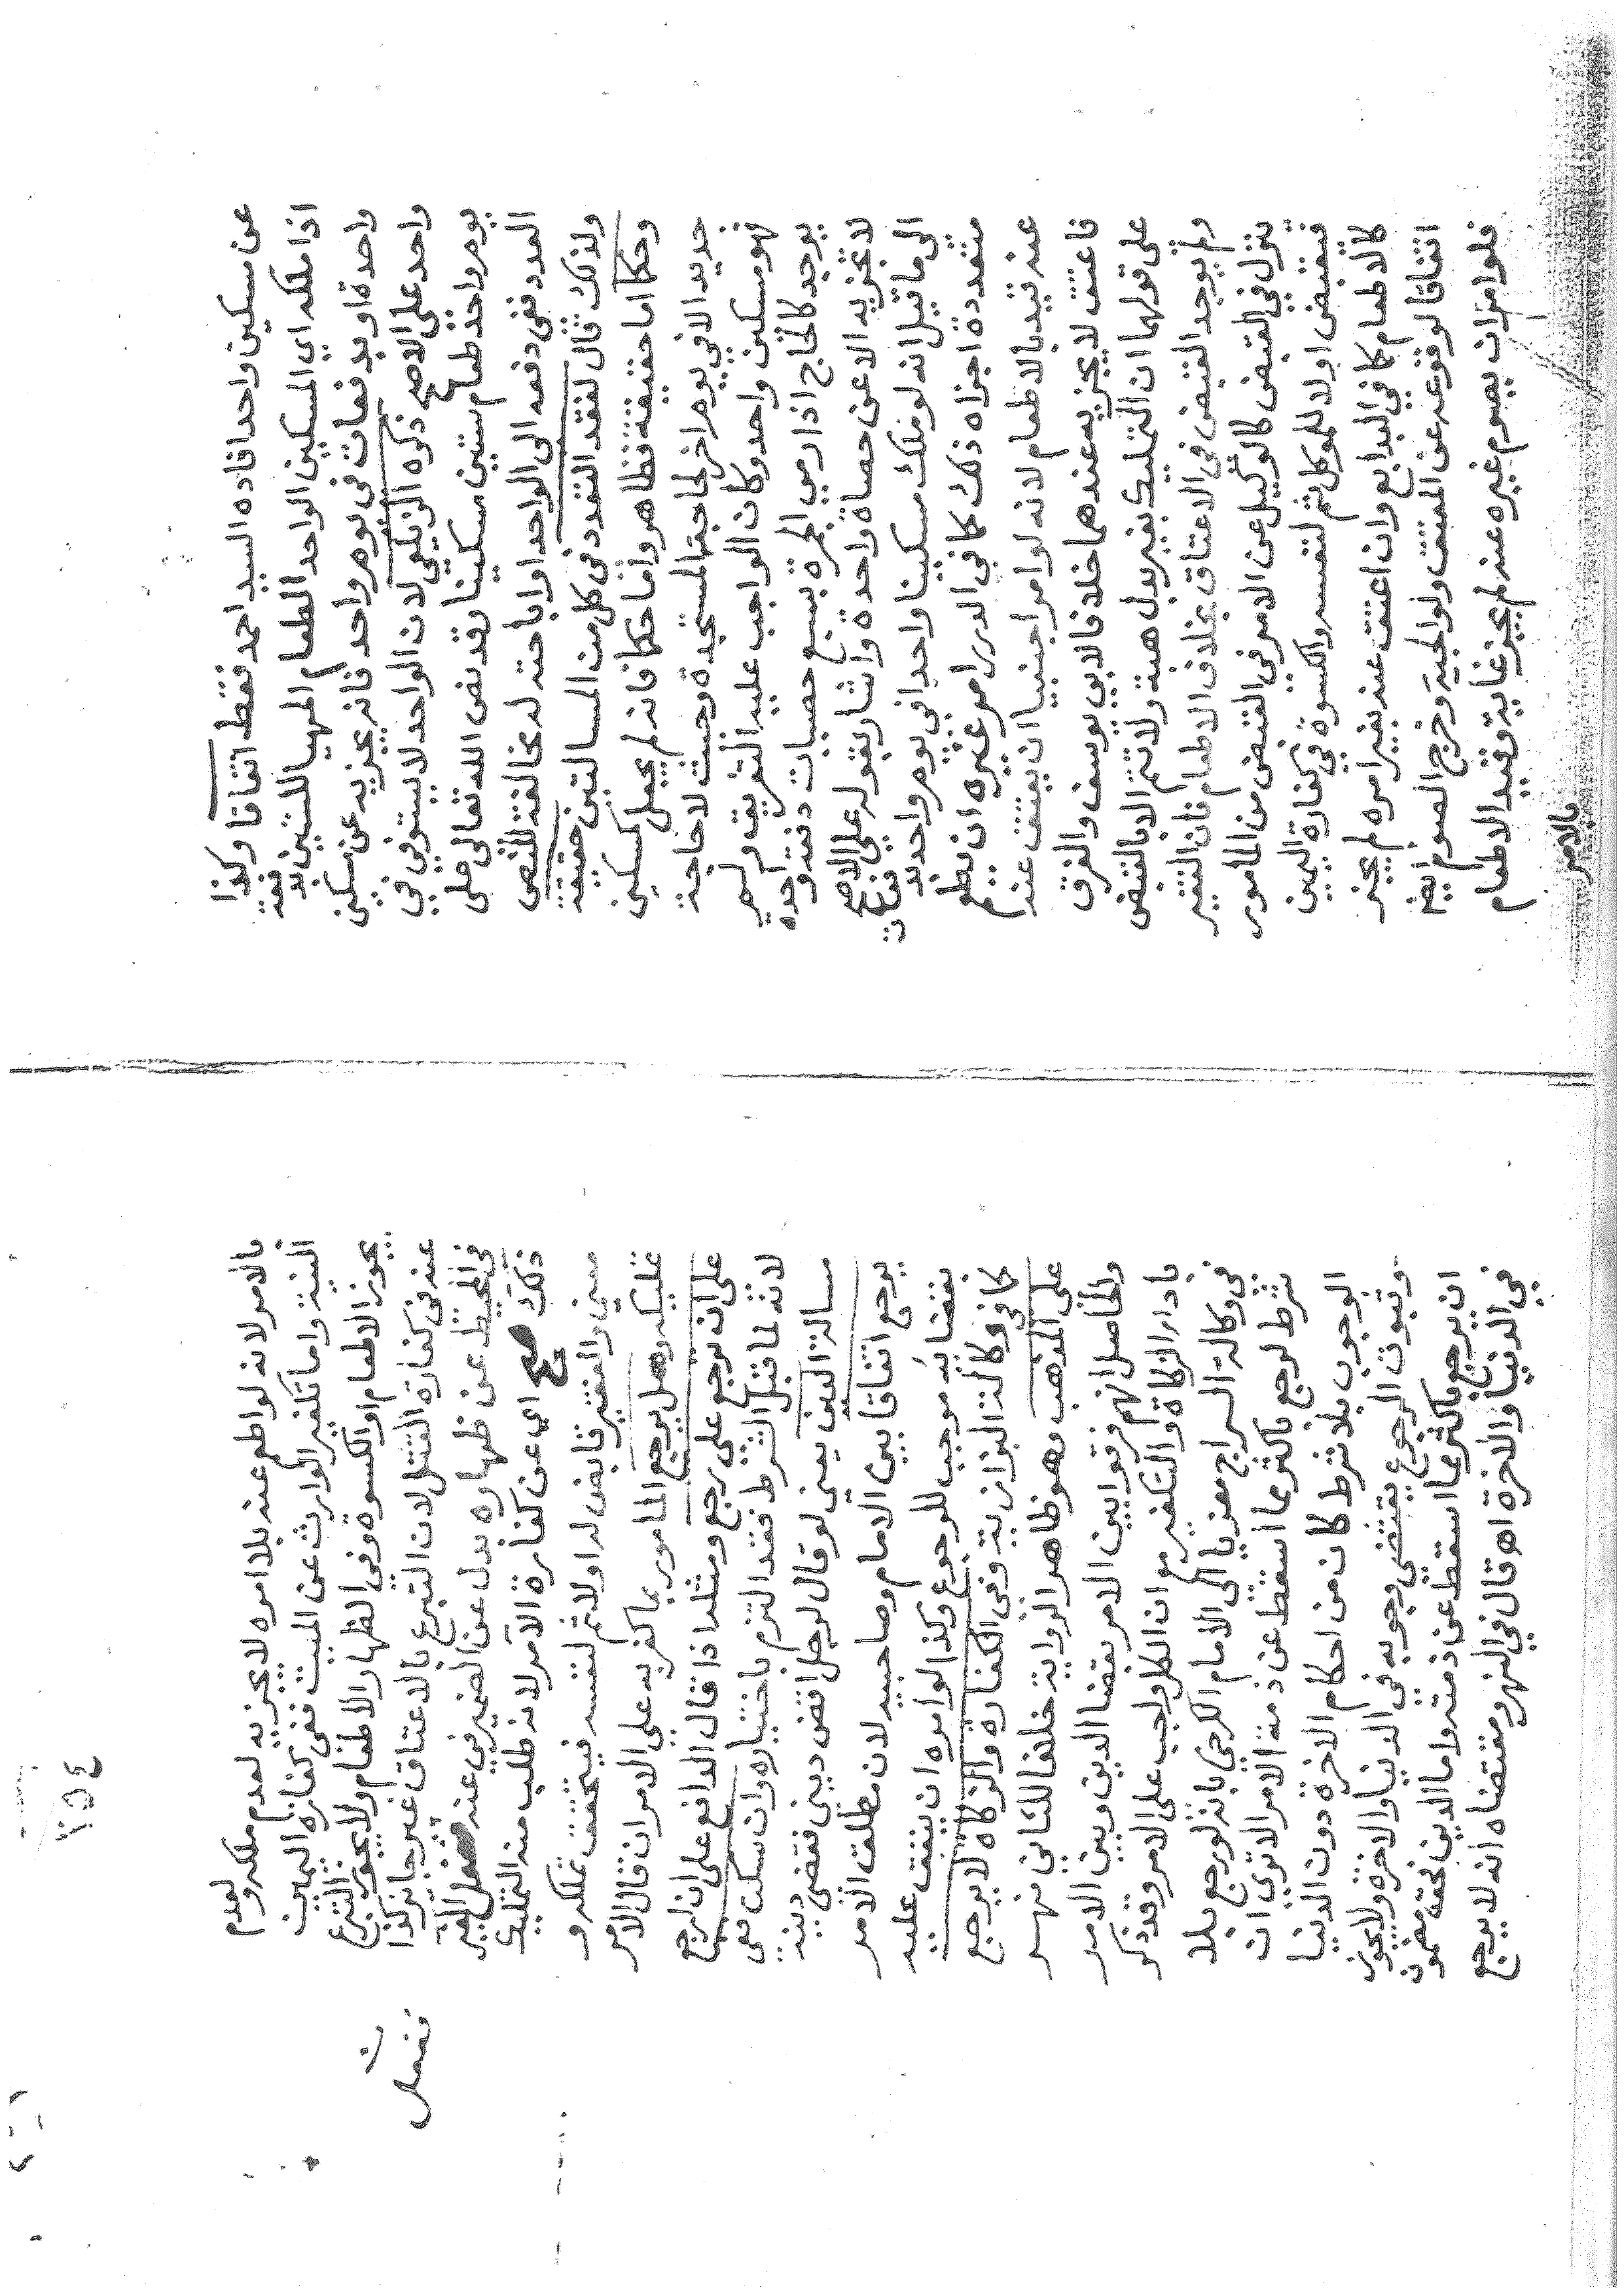 عن مسكين واحد افاده السيد احمد فقط اتفاقا وكذا
اذا ملكه اي المسكين الواحد الطعام المهيا للستين بدفعة
واحدة او بدفعات في يوم واحد فانه يجزيه عن مسكين
واحد على الاصح ذكره الزيلعي لان الواحد لا يستوفي في
يوم واحد طعام ستين مسكينا وقد نص الله تعالى على
العدد ففي دفعه الى الواحد او اباحته له مخالفة للنص
ولذلك قال لفقد التعدد في كل من المسالتين حقيقة
وحكما اما حقيقة فظاهر واما حكما فانه لم يجعل كمسكين
جديد الا في يوم اخر لحاجته المستجدة وحيث لا حاجة
فهو مسكين واحد وكان الواجب عليه التفريق ولم
يوجد كالحاج اذا رمي الجمرة بسبع حصيات دفعة واحدة
لا تجزيه الا عن حصاة واحدة واشار بقوله على الاصح
الى ما قيل انه لو ملك مسكينا واحدا في يوم واحد بدفعات
متعددة اجزاه ذلك كما في الدرر امر غيره ان يطعم
عنه قيد بالاطعام لانه لو امر اجنبيا ان يعتق عنه
فاعتق لا يجزيه عندهما خلافا لابي يوسف والفرق
على قولهما ان التمليك بغير بدل هبة ولا تتم الا بالقبض
ولم يوجد القبض في الاعتاق بخلاف الاطعام فان الفقير
ينزل في القبض كالوكيل عن الامر في القبض من المامور
فيقبض اولا للموكل ثم لنفسه والكسوة في كفارة اليمين
كالاطعام كما في البدايع وان اعتق عنه بغير امره لم يجز
اتفاقا لوقوعه عن المعتق ولو لحية وخرج الصوم ايض
فلو امر ان يصوم غيره عنه لم يجز غاية وقيد الاطعام
بالامر
بالامر لانه لو اطعم عنه بلا امره لا يجزيه لعدم ملكه ولعدم
النية واما تكفير الوارث عن الميت ففي كفارة اليمين
يجوز الاطعام او الكسوة وفي الظهار الاطعام ولا يجوز التبرع
عنه في كفارة القتل لان التبرع بالاعتاق غير جائز كذا
في المحيط عن ظهاره بدل عن الضمير في عنه ففعل الغير
ذلك صح اي عن كفارة الامر لانه طلب منه التمليك
معنى والفقير قابض له اولا ثم لنفسه فيتحقق تملكه و
تمليكه وهل يرجع المامور بما كفر به على الامر ان قال الامر
على انه ترجع على رجع ومثله اذا قال الدافع على ان ارجع
لانه لما قبل الشرط فقد التزم باختياره وان سكت ففي
مسالة الدين يعني لو قال لرجل اقض ديني فقضى دينه
يرجع اتفاقا بين الامام وصاحبيه لان مطلق الامر
بقضايه موجب للرجوع وكذا لو امره ان ينفق عليه
كما في وكالة البزازية وفي الكفارة والزكاة لا يرجع
على المذهب وهو ظاهر الرواية خلافا للثاني نهر
والحاصل انهم فرقوا بين الامر بقضا الدين وبين الامر
بادا الزكاة والتكفير مع ان الكل واجب على الامر وقد ذكر
في وكالة السراج معزيا الى الامام الكرخي بانه لو رجع بلا
شرط لرجع باكثر مما اسقط عن ذمة الامر الا ترى ان
الوجوب بلا شرط كان من احكام الاخرة دون الدنيا
وثبوت الرجوع يقتضي وجوبه في الدنيا والاخرة ولا يجوز
ان يرجع باكثر مما اسقط عن ذمته واما الدين فحقه مضمون
في الدنيا والاخرة اه قال في النهر ومقتضاه انه لا يرجع
٢٥٤